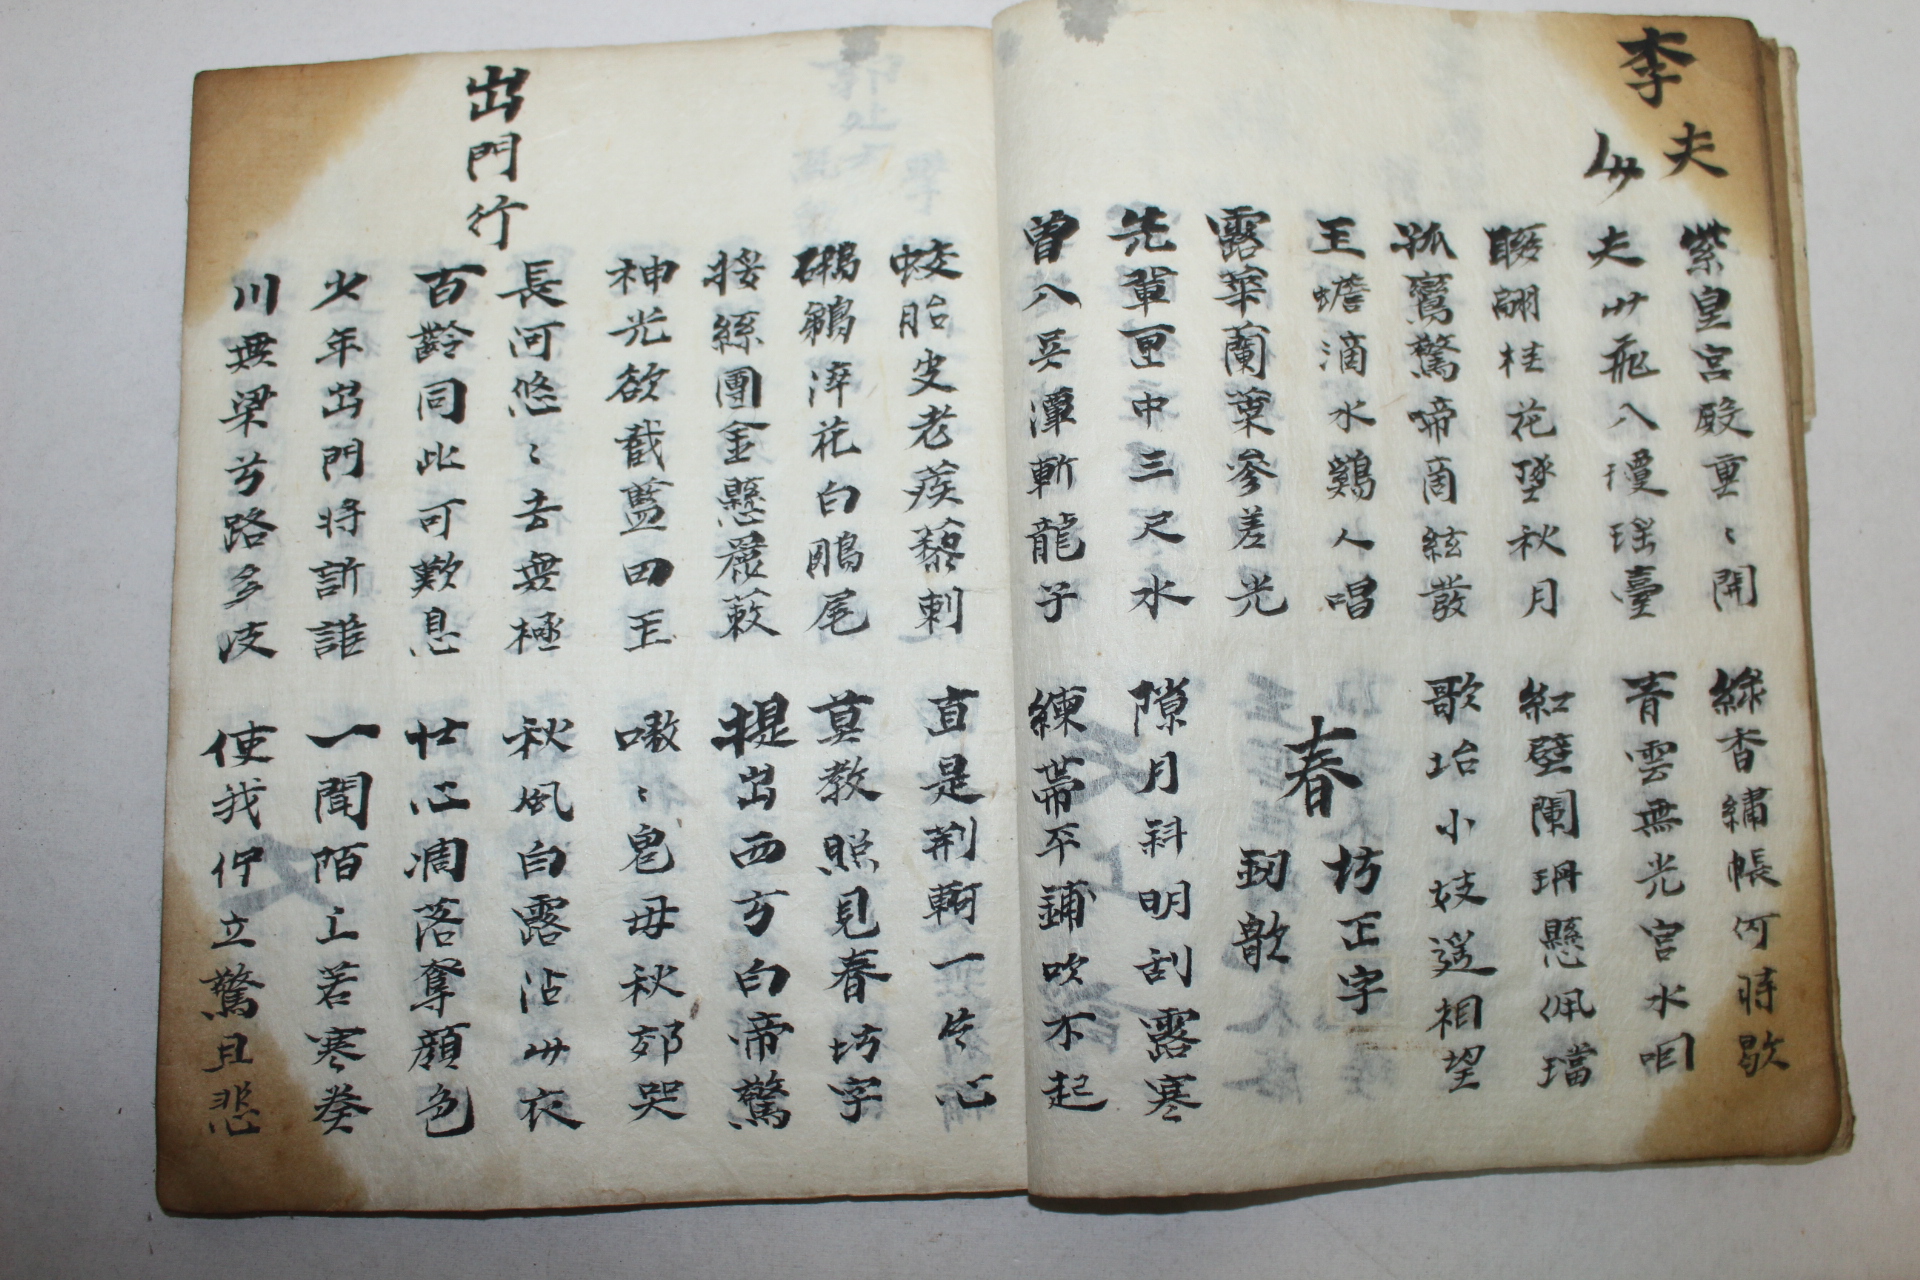 李夫人
紫皇宮殿重〻開
夫人飛入瓊瑤臺
綠香繡帳何時歇
青雲無光宮水咽
聯翩桂花墜秋月
孤鸞驚啼商絃發
紅壁闌珊懸佩璫
歌坮小妓遥相望
玉蟾滴水鷄人唱
露華蘭葉參差光
春坊正字釰歌
先輩匣中三尺水
曾入吳潭斬龍子
隙月斜明刮露寒
練帶平鋪吹不起
蛟胎皮老蒺藜刺
鷿鵜淬花白鷴尾
直是荊軻一片心
莫教照見春坊字
挼絲團金懸簏簌
神光欲截藍田玉
提出西方白帝驚
嗷〻鬼母秋郊哭
出門行
長河悠〻去無極
百齡同此可歎息
秋風白露沾人衣
壯心凋落奪顔色
少年出門將訴誰
川無梁兮路多岐
一聞陌上苦寒奏
使我佇立驚且悲